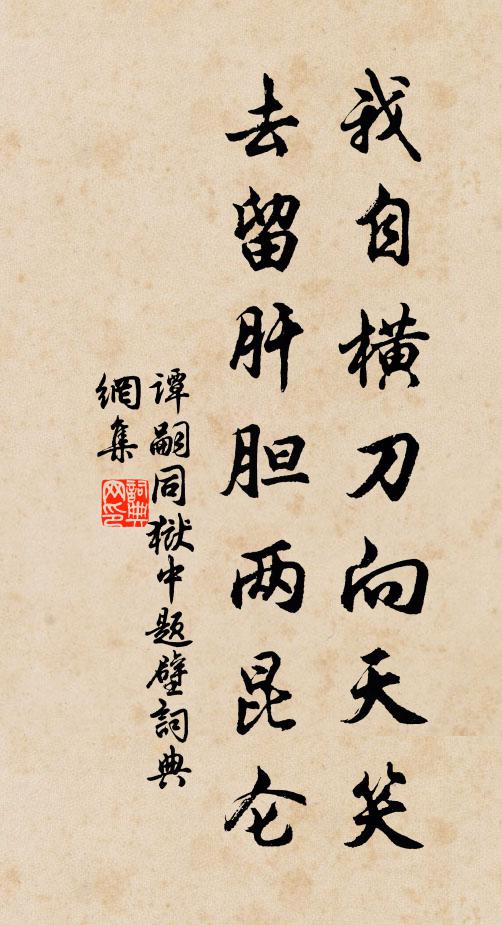 我自横刀向天笑
去留肝胆两昆仑
谭嗣同狱中题壁詞典
網集
詞典
网印